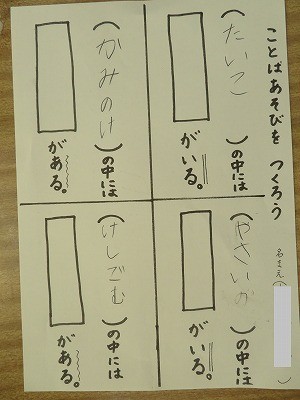 ことばあそびを つくろう
名まえ( )
(たいこ)の中には
がいる。
(やさいか)の中には
がいる。
(かみのけ)の中には
がある。
(けしごむ)の中には
がある。